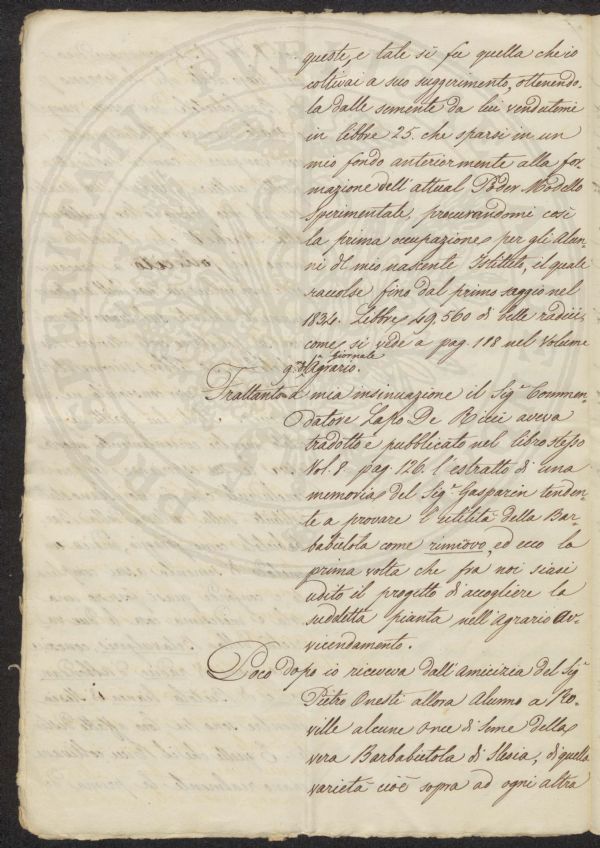 queste, e tale si fu quella che io
coltivai a suo suggerimento, ottenendo-
la dalle semente da lui vendutemi
in libbre 25. che sparsi in un
mio fondo anteriormente alla for-
mazione dell'attual Poder Modello
Sperimentale, procurandomi così
la prima occupazione per gli Alun-
ni del mio nascente Istituto, il quale
raccolse fino dal primo saggio nel
1834. Libbre 49,560 di belle radici
come si vede a pag. 118 nel Volume
9.º del Giornale Agrario.
Frattanto a mia insinuazione il Sigr. Commen-
datore Lapo De Ricci aveva
tradotto e pubblicato nel libro stesso
Vol. 8. pag. 126. l'estratto di una
memoria del Sigr. Gasparin tenden-
te a provare l'utilità della Bar-
babietola come rinnovo, ed ecco la
prima volta che fra noi siasi
udito il progetto di accogliere la
suddetta pianta nell'Agrario Av-
vicendamento.
Poco dopo io riceveva dall'Amicizia del Sigr.
Pietro Onesti allora Alunno a Ro-
ville alcune once di seme della
vera Barbabietola di Slesia, di quella
varietà cioè sopra ad ogni altra